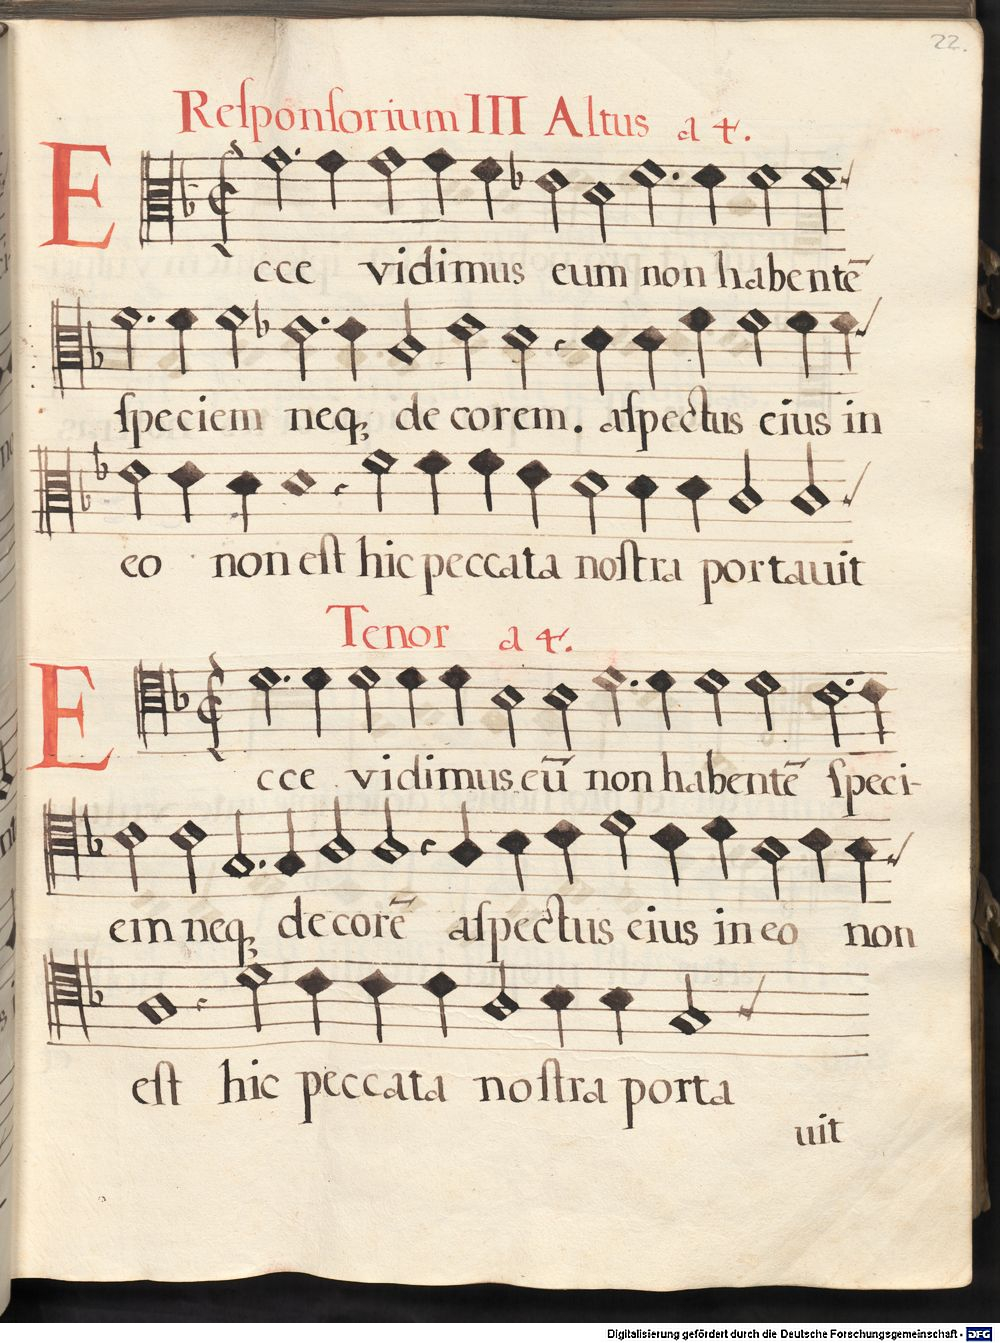 22.
Reſponſorium III Altus a 4.
Ecce vidimus eum non habentē
ſpeciem neq; decorem. aſpectus eius in
eo non eſt hic peccata noſtra portauit
Tenor a 4.
Ecce vidimus eū non habentē ſpeci-
em neq; decorē aſpectus eius in eo non
eſt hic peccata noſtra porta
uit
Digitalisierung gefördert durch die Deutsche Forschungsgemeinschaft - DFG